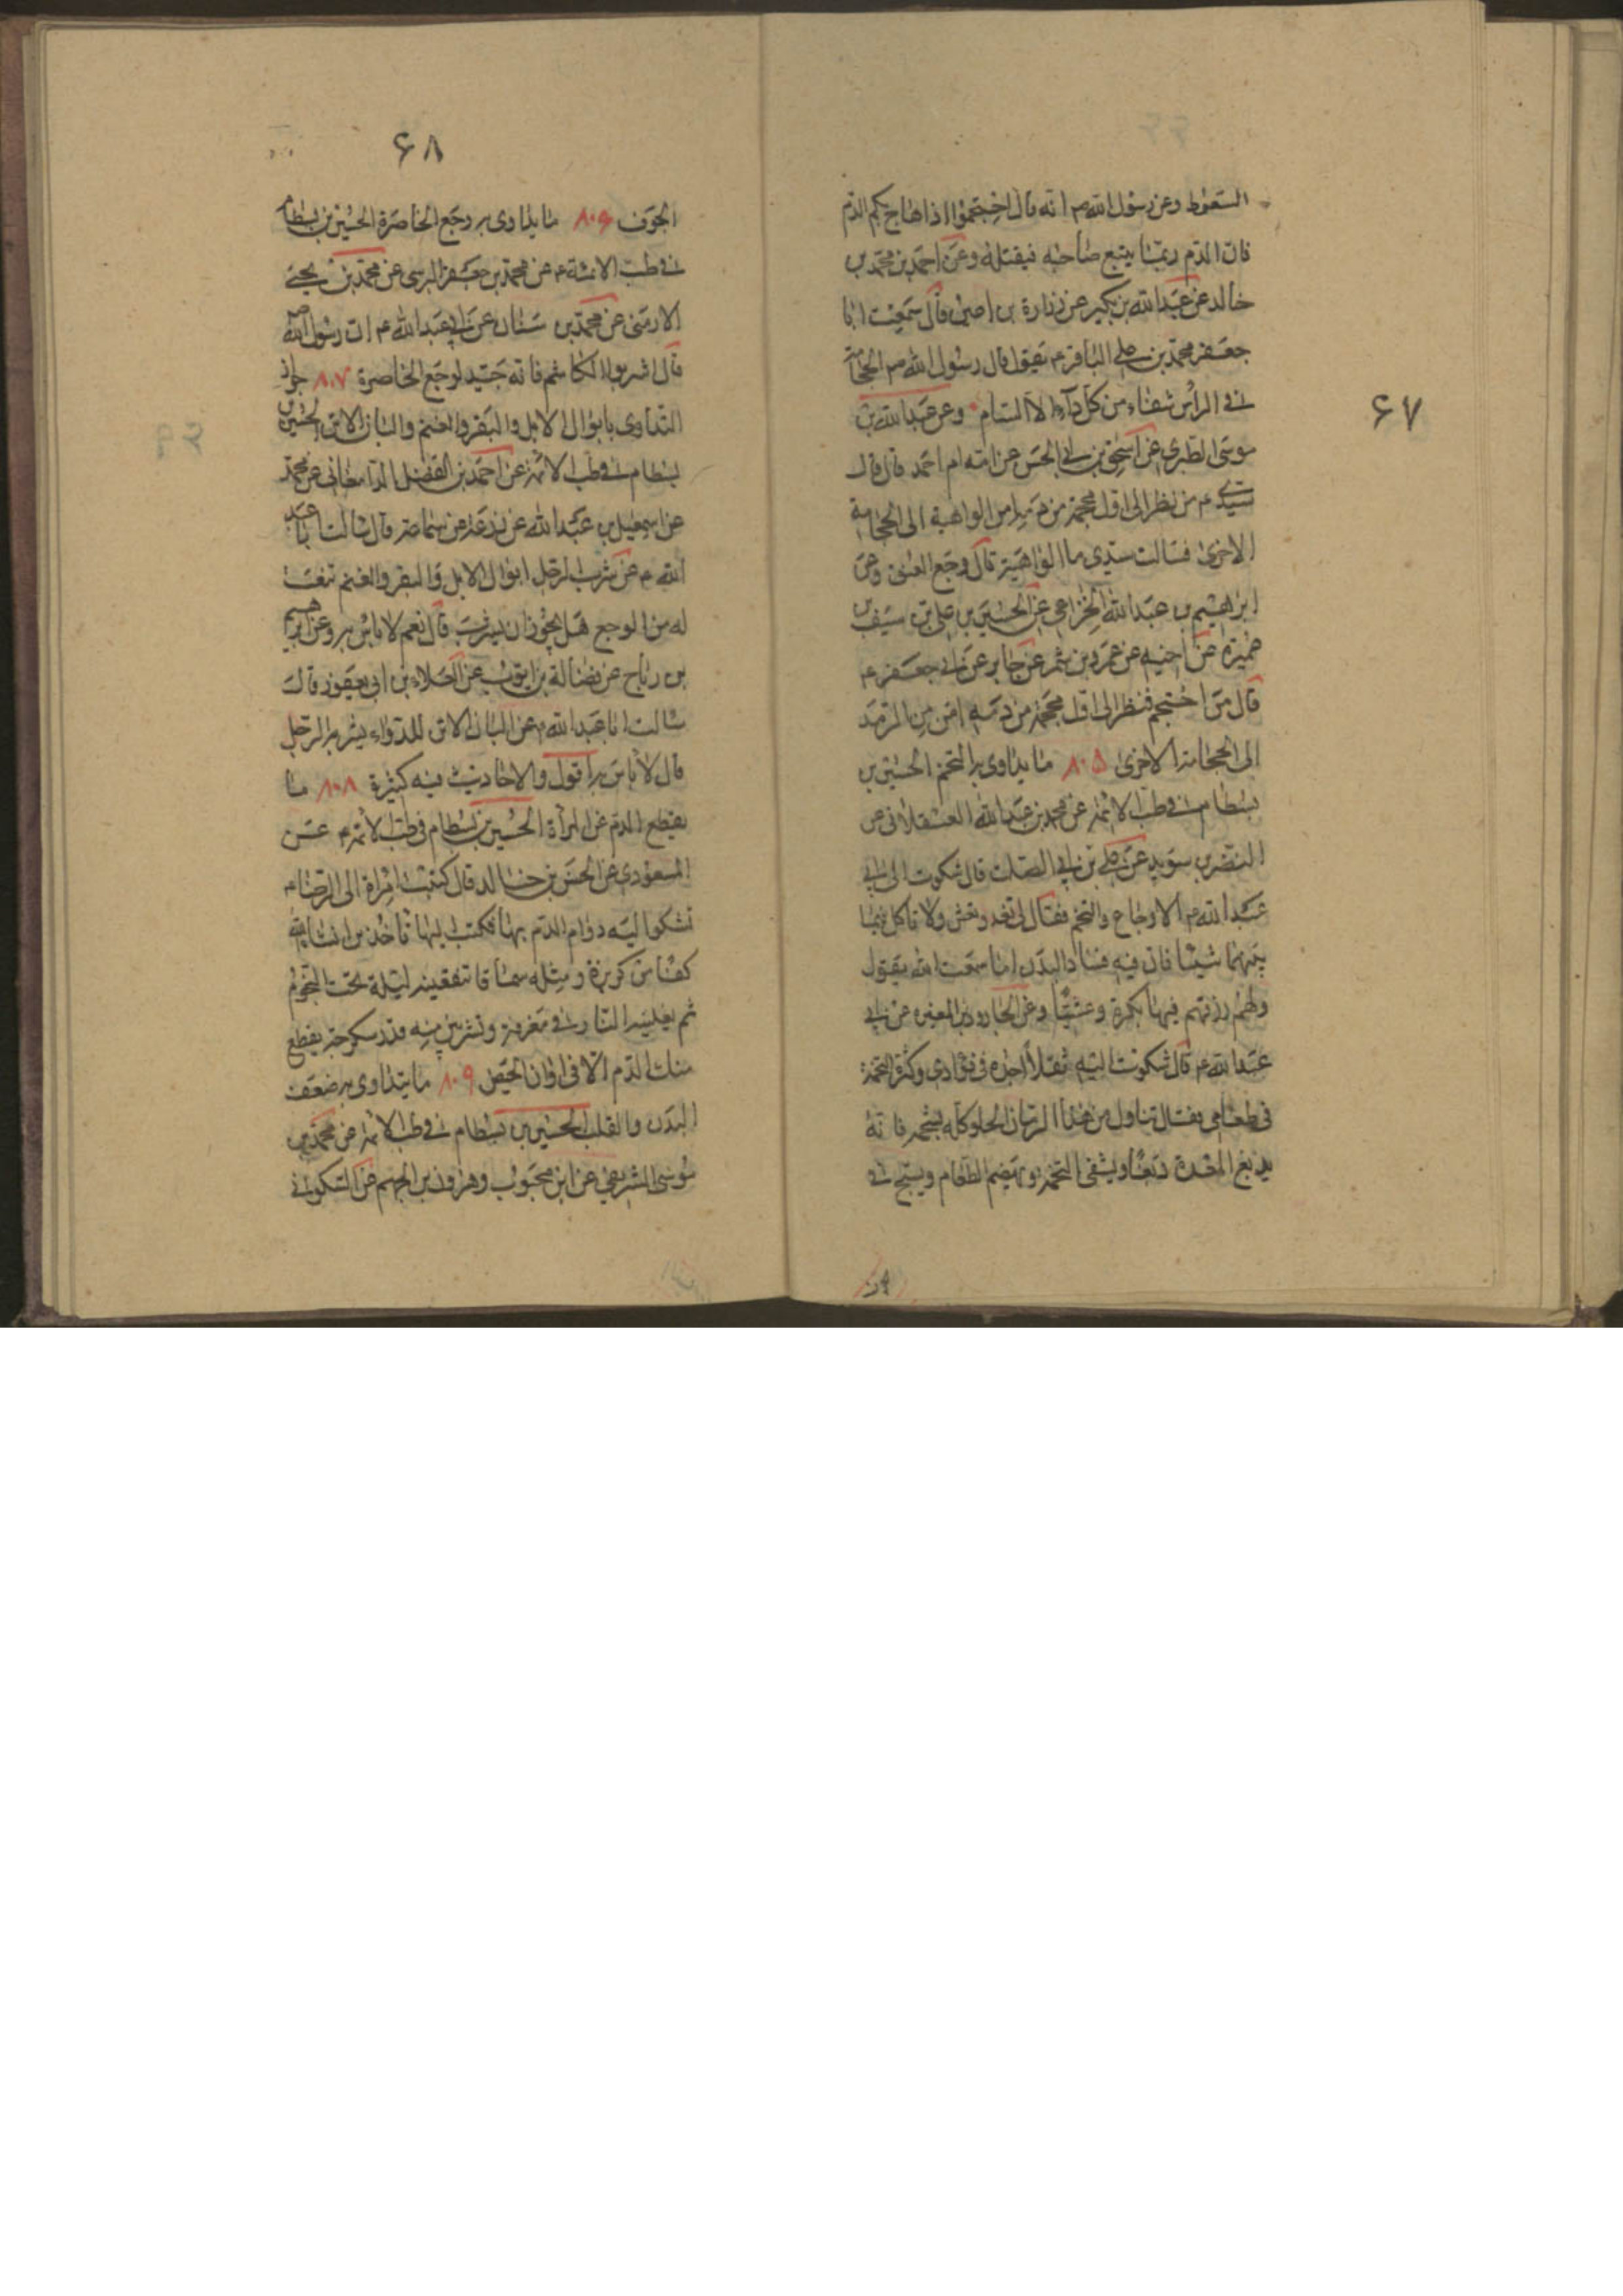 ۶۷
السعوط وعن رسول الله ص انه قال احتجموا اذا هاج بكم الدم
فان الدم ربما يتبع صاحبه فيقتله وعن احمد بن محمد بن
خالد عن عبد الله بن بكير عن زرارة بن اعين قال سمعت ابا
جعفر محمد بن علي الباقر ع يقول قال رسول الله ص الحجامة
في الراس شفاء من كل داء الا السام وعن عبد الله بن
موسى الطبري عن اسحق بن ابي الحسن عن امه ام احمد قال قال
سيدي ع من نظر الى اول محجمة من دمه امن الواهية الى الحجامة
الاخرى فسالت سيدي ما الواهية قال وجع العنق وعن
ابراهيم بن عبد الله الخزاعي عن الحسين بن علي بن سيف بن
عميرة عن اخيه عن عمرو بن شمر عن جابر عن ابي جعفر ع
قال من احتجم فنظر الى اول محجمة من دمه امن من الرمد
الى الحجامة الاخرى ۸۰۵ ما يداوى به التخم الحسين بن
بسطام في طب الائمة عن محمد بن عبد الله العسقلاني عن
النضر بن سويد عن علي بن ابي الصلت قال شكوت الى ابي
عبد الله ع الاوجاع والتخم فقال لي تغد وتعش ولا تاكل فيما
بينهما شيئا فان فيه فساد البدن اما سمعت الله يقول
ولهم رزقهم فيها بكرة وعشيا وعن الجارود بن المغيره عن ابي
عبد الله ع قال شكوت اليه ثقلا اجده في فؤادي وكثرة التخمة
في طعامي فقال تناول من هذا الرمان الحلو وكله بشحمه فانه
يدبغ المعدة دبغا ويشفي التخمه ويهضم الطعام ويسبح في
۶۸
الجوف ۸۰۶ ما يداوى به وجع الخاصرة الحسين بن بسطام
في طب الائمة ع عن محمد بن جعفر البرسي عن محمد بن يحيى
الارمني عن محمد بن سنان عن ابي عبد الله ع ان رسول الله ص
قال اشربوا الكاشم فانه جيد لوجع الخاصرة ۸۰۷ جواز
التداوي بابوال الابل والبقر والغنم والبان الاتن الحسين بن
بسطام في طب الائمة عن احمد بن الفضل الدامغاني عن محمد
عن اسمعيل بن عبد الله عن زرعة عن سماعة قال سالت ابا عبد
الله ع عن شرب الرجل ابوال الابل والبقر والغنم تنعت
له من الوجع هل يجوز ان يشرب قال نعم لا باس به وعن ابراهيم
بن رباح عن فضالة بن ايوب عن العلاء بن ابي يعفور قال
سالت ابا عبد الله ع عن البان الاتن للدواء يشربها الرجل
قال لا باس به اقول والاحاديث فيه كثيرة ۸۰۸ ما
يقطع الدم عن المراة الحسين بن بسطام في طب الائمة ع عن
المسعودي عن الحسن بن خالد قال كتبت امراة الى الرضا ع
تشكو اليه دوام الدم بها فكتب اليها تاخذين انشاء الله
كفا من كزبرة ومثله سماقا تنقعينه ليلة تحت النجوم
ثم تغلينه النار في مغرفة وتشربين منه قدر سكرجة يقطع
عنك الدم الا في اوان الحيض ۸۰۹ ما يتداوى به ضعف
البدن والقلب الحسين بن بسطام في طب الائمة عن محمد بن
موسى الشريفي عن ابن محبوب وهرون بن الجهم عن السكوني